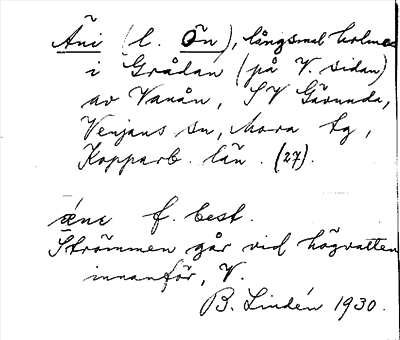 Äni (l. Ön), långsmal holme
i Grådan (på V. sidan)
av Vanån, SV Gävunda,
Venjans sn, Mora tg,
Kopparb. län. (27).
äne f. best.
Strömmen går vid högvatten
innanför, V.
B. Lindén 1930.